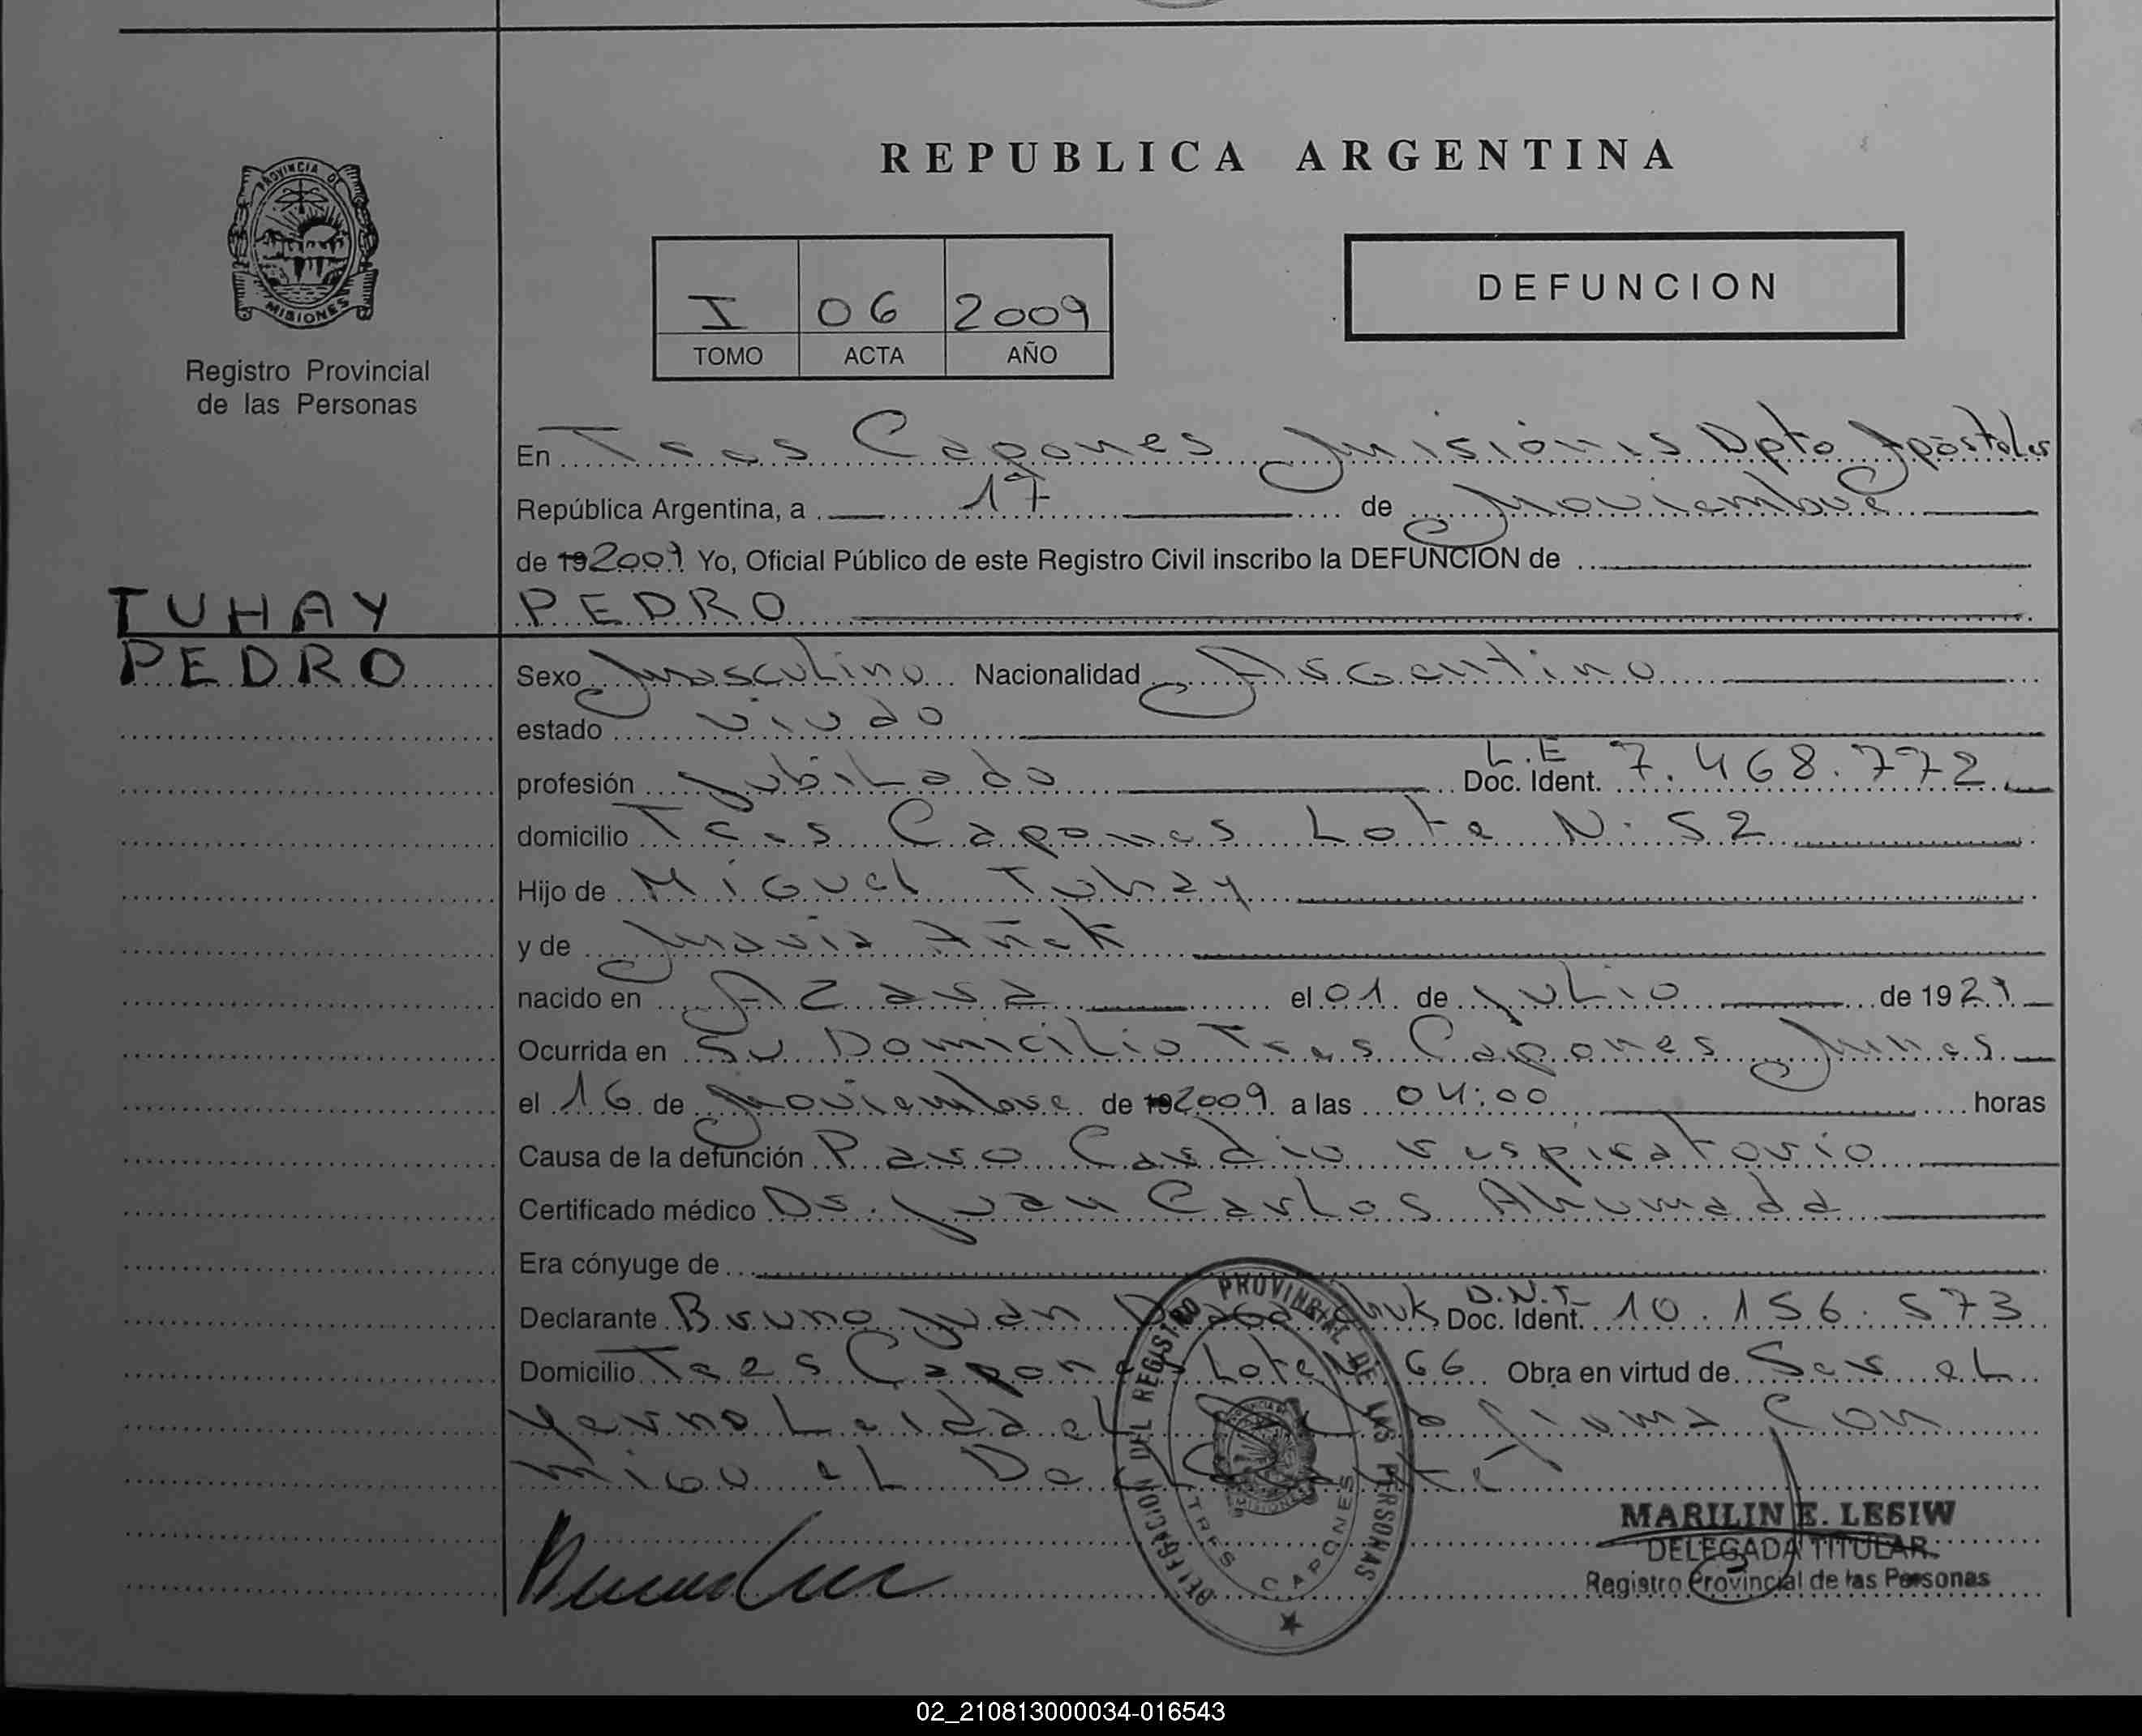 REPUBLICA ARGENTINA
PROVINCIA DE MISIONES
Registro Provincial
de las Personas
I 06 2009
TOMO ACTA AÑO
DEFUNCION
En Tres Capones Misiones Dpto Apóstoles
República Argentina, a 17 de Noviembre
de 192009 Yo, Oficial Público de este Registro Civil inscribo la DEFUNCION de
TUHAY
PEDRO
PEDRO
Sexo Masculino Nacionalidad Argentino
estado viudo
profesión Jubilado L.E Doc. Ident. 7.468.772
domicilio Tres Capones Lote N· 52
Hijo de Miguel Tuhay
y de María Añek
nacido en Azara el 01 de Julio de 1929
Ocurrida en Su Domicilio Tres Capones Mnes
el 16 de Noviembre de 192009 a las 04:00 horas
Causa de la defunción Paro Cardio respiratorio
Certificado médico Dr. Juan Carlos Ahumada
Era cónyuge de
Declarante Bruno Juan D.N.I Doc. Ident. 10.156.573
Domicilio Tres Capones Lote N· 66 Obra en virtud de Ser el
yerno Leida el firma con
migo el
DELEGACION DEL REGISTRO PROVINCIAL DE LAS PERSONAS
TRES CAPONES
MARILIN E. LESIW
DELEGADA TITULAR
Registro Provincial de las Personas
02_210813000034-016543